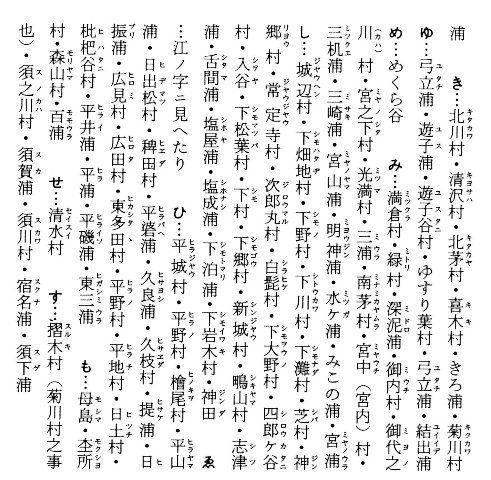 浦　き…北川村・清沢村・北茅村・喜木村・きろ浦・菊川村
ゆ…弓立浦・遊子浦・遊子谷村・ゆすり葉村・弓立浦・結出浦
め…めくら谷　み…満倉村・緑村・深泥浦・御内村・御代之
川村・宮之下村・光満村・三浦・南茅村・宮中（宮内）村・
三机浦・三崎浦・宮山浦・明神浦・水ヶ浦・みこの浦・宮浦
し…城辺村・下畑地村・下野村・下川村・下灘村・芝村・神
郷村・常定寺村・次郎丸村・白髭村・下大野村・四郎ケ谷
村・入谷・下松葉村・下村・下郷村・新城村・鴫山村・志津
浦・舌間浦・塩屋浦・塩成浦・下泊浦・下岩木村・神田　ゑ
…江ノ字ニ見へたり　ひ…平城村・平野村・檜尾村・平山
浦・日出松村・稗田村・平碆浦・久良浦・久枝村・提浦・日
振浦・広見村・広田村・東多田村・平野村・平地村・日土村・
枇杷谷村・平井浦・平浦・平磯浦・東三浦　も…母島・杢所
村・森山村・百浦　せ…清水村　す…摺木村（菊川村之事
也）・須之川村・須賀浦・須川村・宿名浦・須下浦